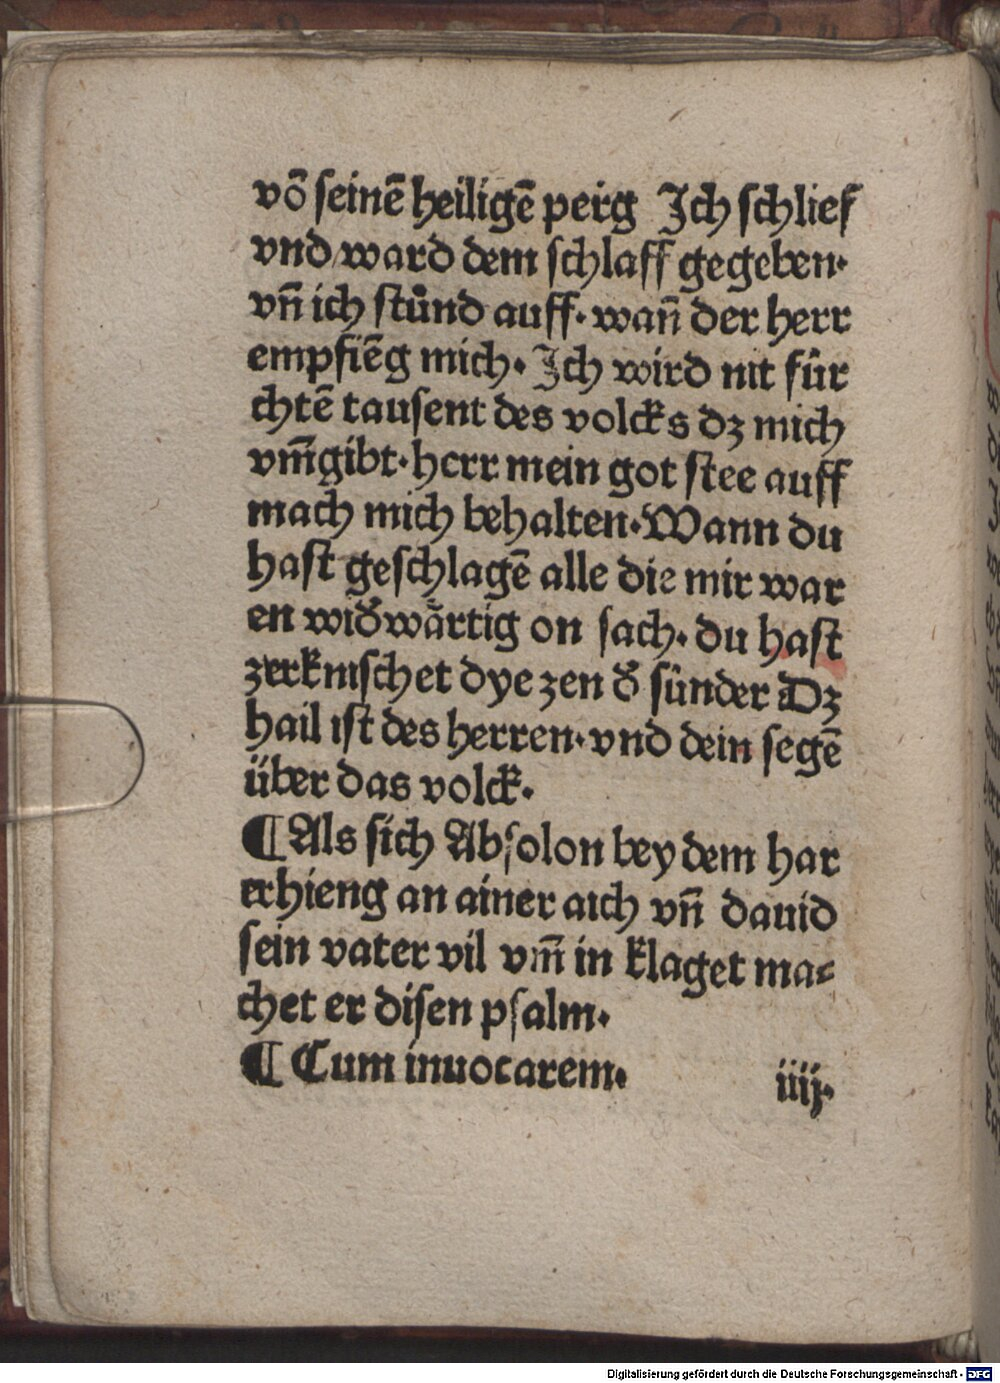 võ seinē heiligē perg Jch schlief
vnd ward dem schlaff gegeben·
vn̄ ich stůnd auff· wan̄ der herr
empfiēg mich· Jch wird nit für
chtē tausent des volcks dz mich
vm̄gibt· herr mein got stee auff
mach mich behalten· Wann du
hast geschlagē alle die mir war
en wid̕wärtig on sach· du hast
zerknischet dye zen d̕ sünder Dz
hail ist des herren· vnd dein segē
über das volck·
¶ Als sich Absolon bey dem har
erhieng an ainer aich vn̄ dauid
sein vater vil vm̄ in klaget ma⸗
chet er disen psalm·
¶ Cum inuocarem· iiij·
Digitalisierung gefördert durch die Deutsche Forschungsgemeinschaft - DFG